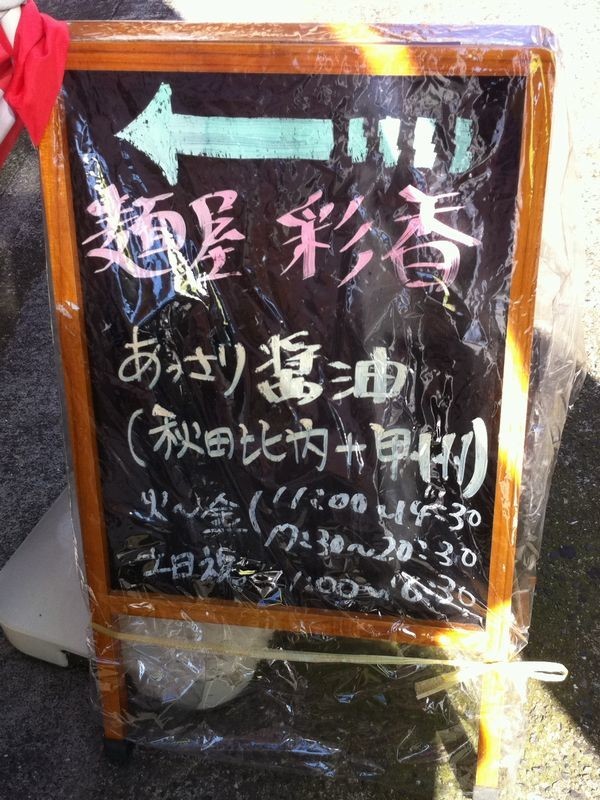 麺屋 彩香
あっさり醤油
(秋田比内+甲州)
火〜金(11:00〜14:30
17:30〜20:30
土日祝 11:00〜16:30